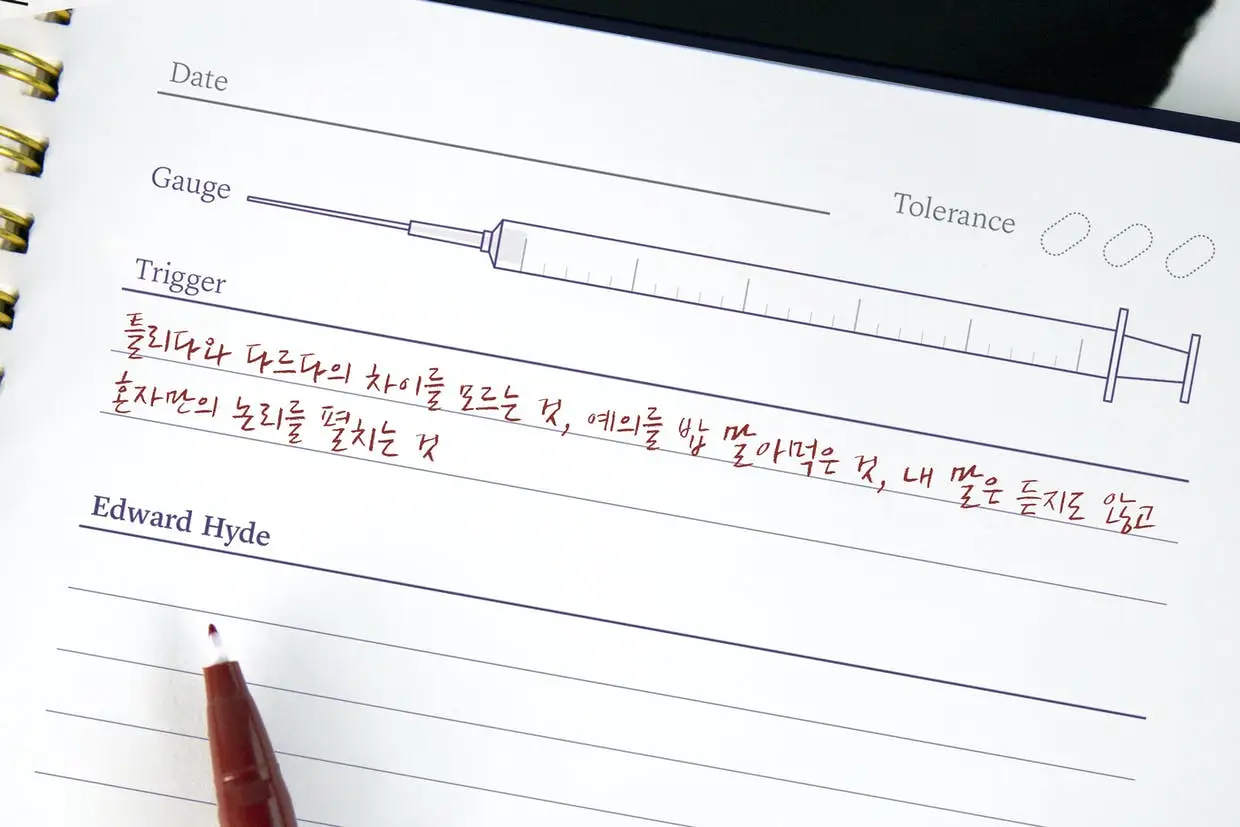 Date
Gauge
Tolerance
Trigger
틀리다와 다르다의 차이를 모르는 것, 예의를 밥 말아먹은 것, 내 말은 듣지도 않고
혼자만의 논리를 펼치는 것
Edward Hyde